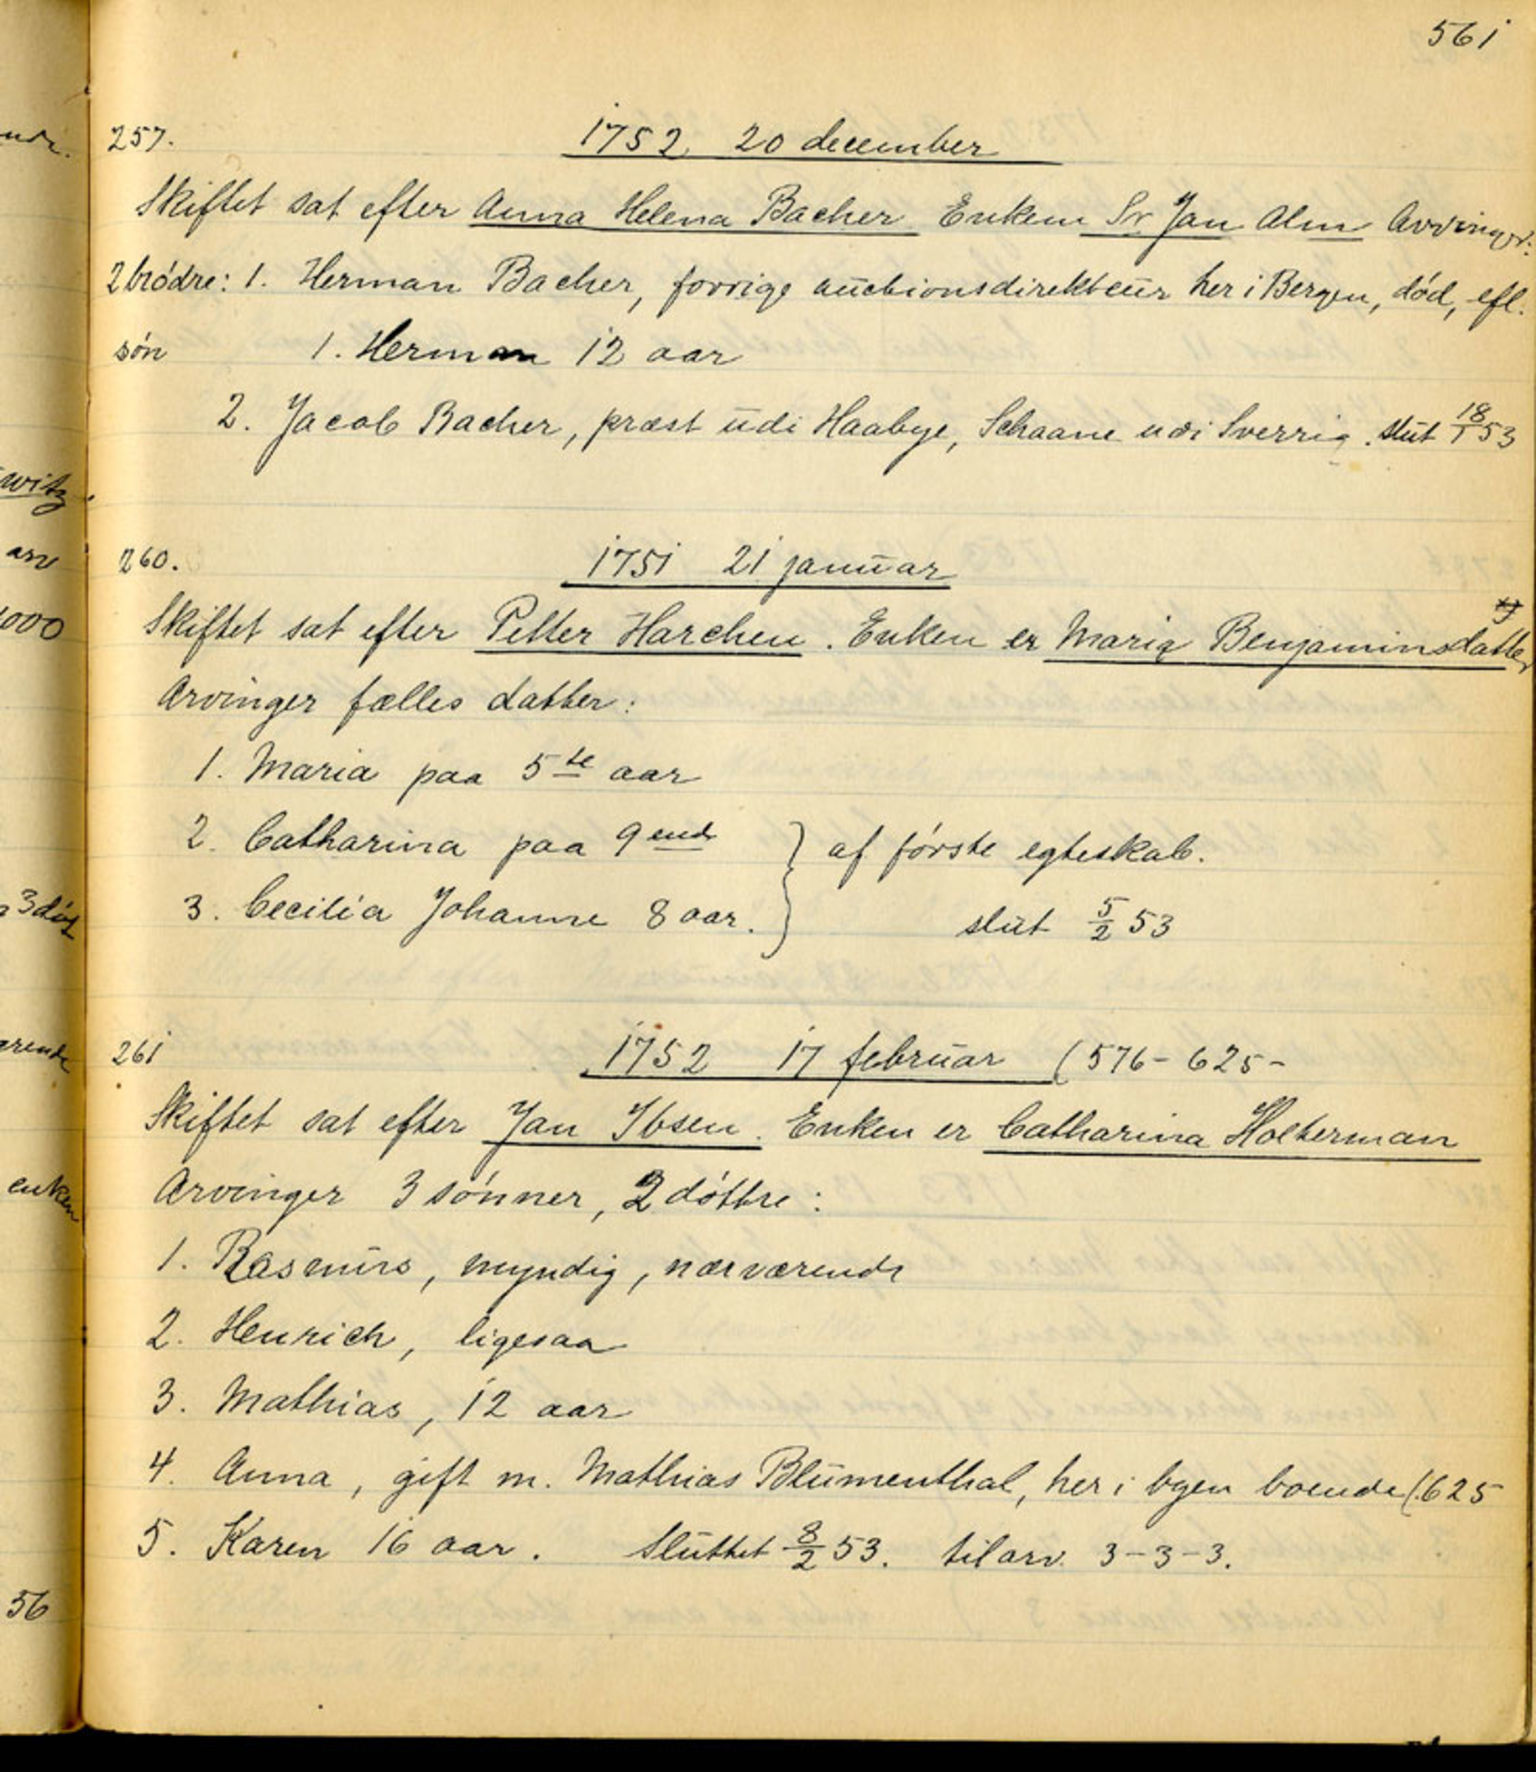 561
257. 1752 20 december
Skiftet sat efter Anna Helena Bacher Enkem Sr Jan Alm Arvinger:
2 brødre: 1. Herman Bacher, forrige auctionsdirekteur her i Bergen, død, efl.
søn 1. Herman 12 aar
2. Jacob Bacher, præst udi Haabye, Schaane udi Sverrig. slut 18/1 53
260. 1751 21 januar
Skiftet sat efter Petter Harchen. Enken er Maria Benjaminsdatter
Arvinger fælles datter:
1. Maria paa 5te aar
2. Catharina paa 9ende } af første egteskab.
3. Cecilia Johanne 8 aar. } slut 5/2 53
261 1752 17 februar (576 - 625 -
Skiftet sat efter Jan Ibsen. Enken er Catharina Holterman
Arvinger 3 sønner, 2 døttre:
1. Rasmus, myndig, nærværende
2. Henrich, ligesaa
3. Mathias, 12 aar
4. Anna, gift m. Mathias Blumenthal, her i byen boende (625
5. Karen 16 aar. Sluttet 8/2 53. til arv. 3-3-3.
witz
arv
000
3 døt
enken
56